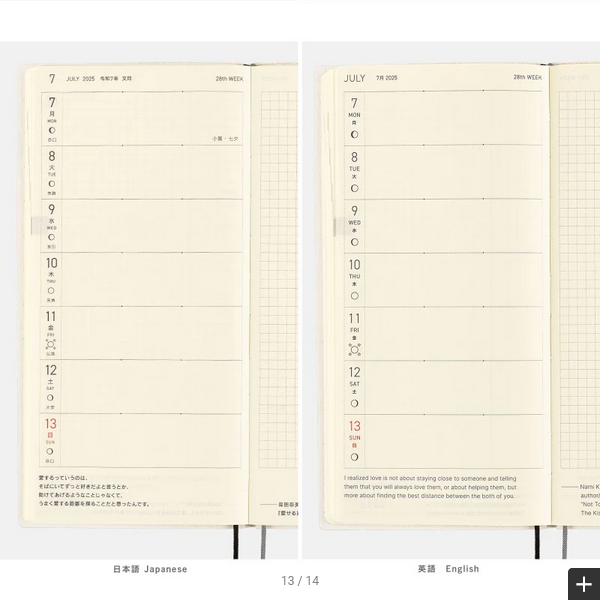 7 JULY 2025 令和7年 文月 28th WEEK
7
月
MON
赤口
小暑・七夕
8
火
TUE
先勝
9
水
WED
友引
10
木
THU
先負
11
金
FRI
仏滅
12
土
SAT
大安
13
日
SUN
赤口
愛するっていうのは、
そばにいてずっと好きだよと言うとか、
助けてあげるようなことじゃなくて、
うまく愛する距離を探ることだと思ったんです。
日本語 Japanese
JULY 7月 2025 28th WEEK
7
MON
月
8
TUE
火
9
WED
水
10
THU
木
11
FRI
金
12
SAT
土
13
SUN
日
I realized love is not about staying close to someone and telling
them that you will always love them, or about helping them, but
more about finding the best distance between the both of you.
Nami K
author
"Not To
The Kis
英語 English
13 / 14